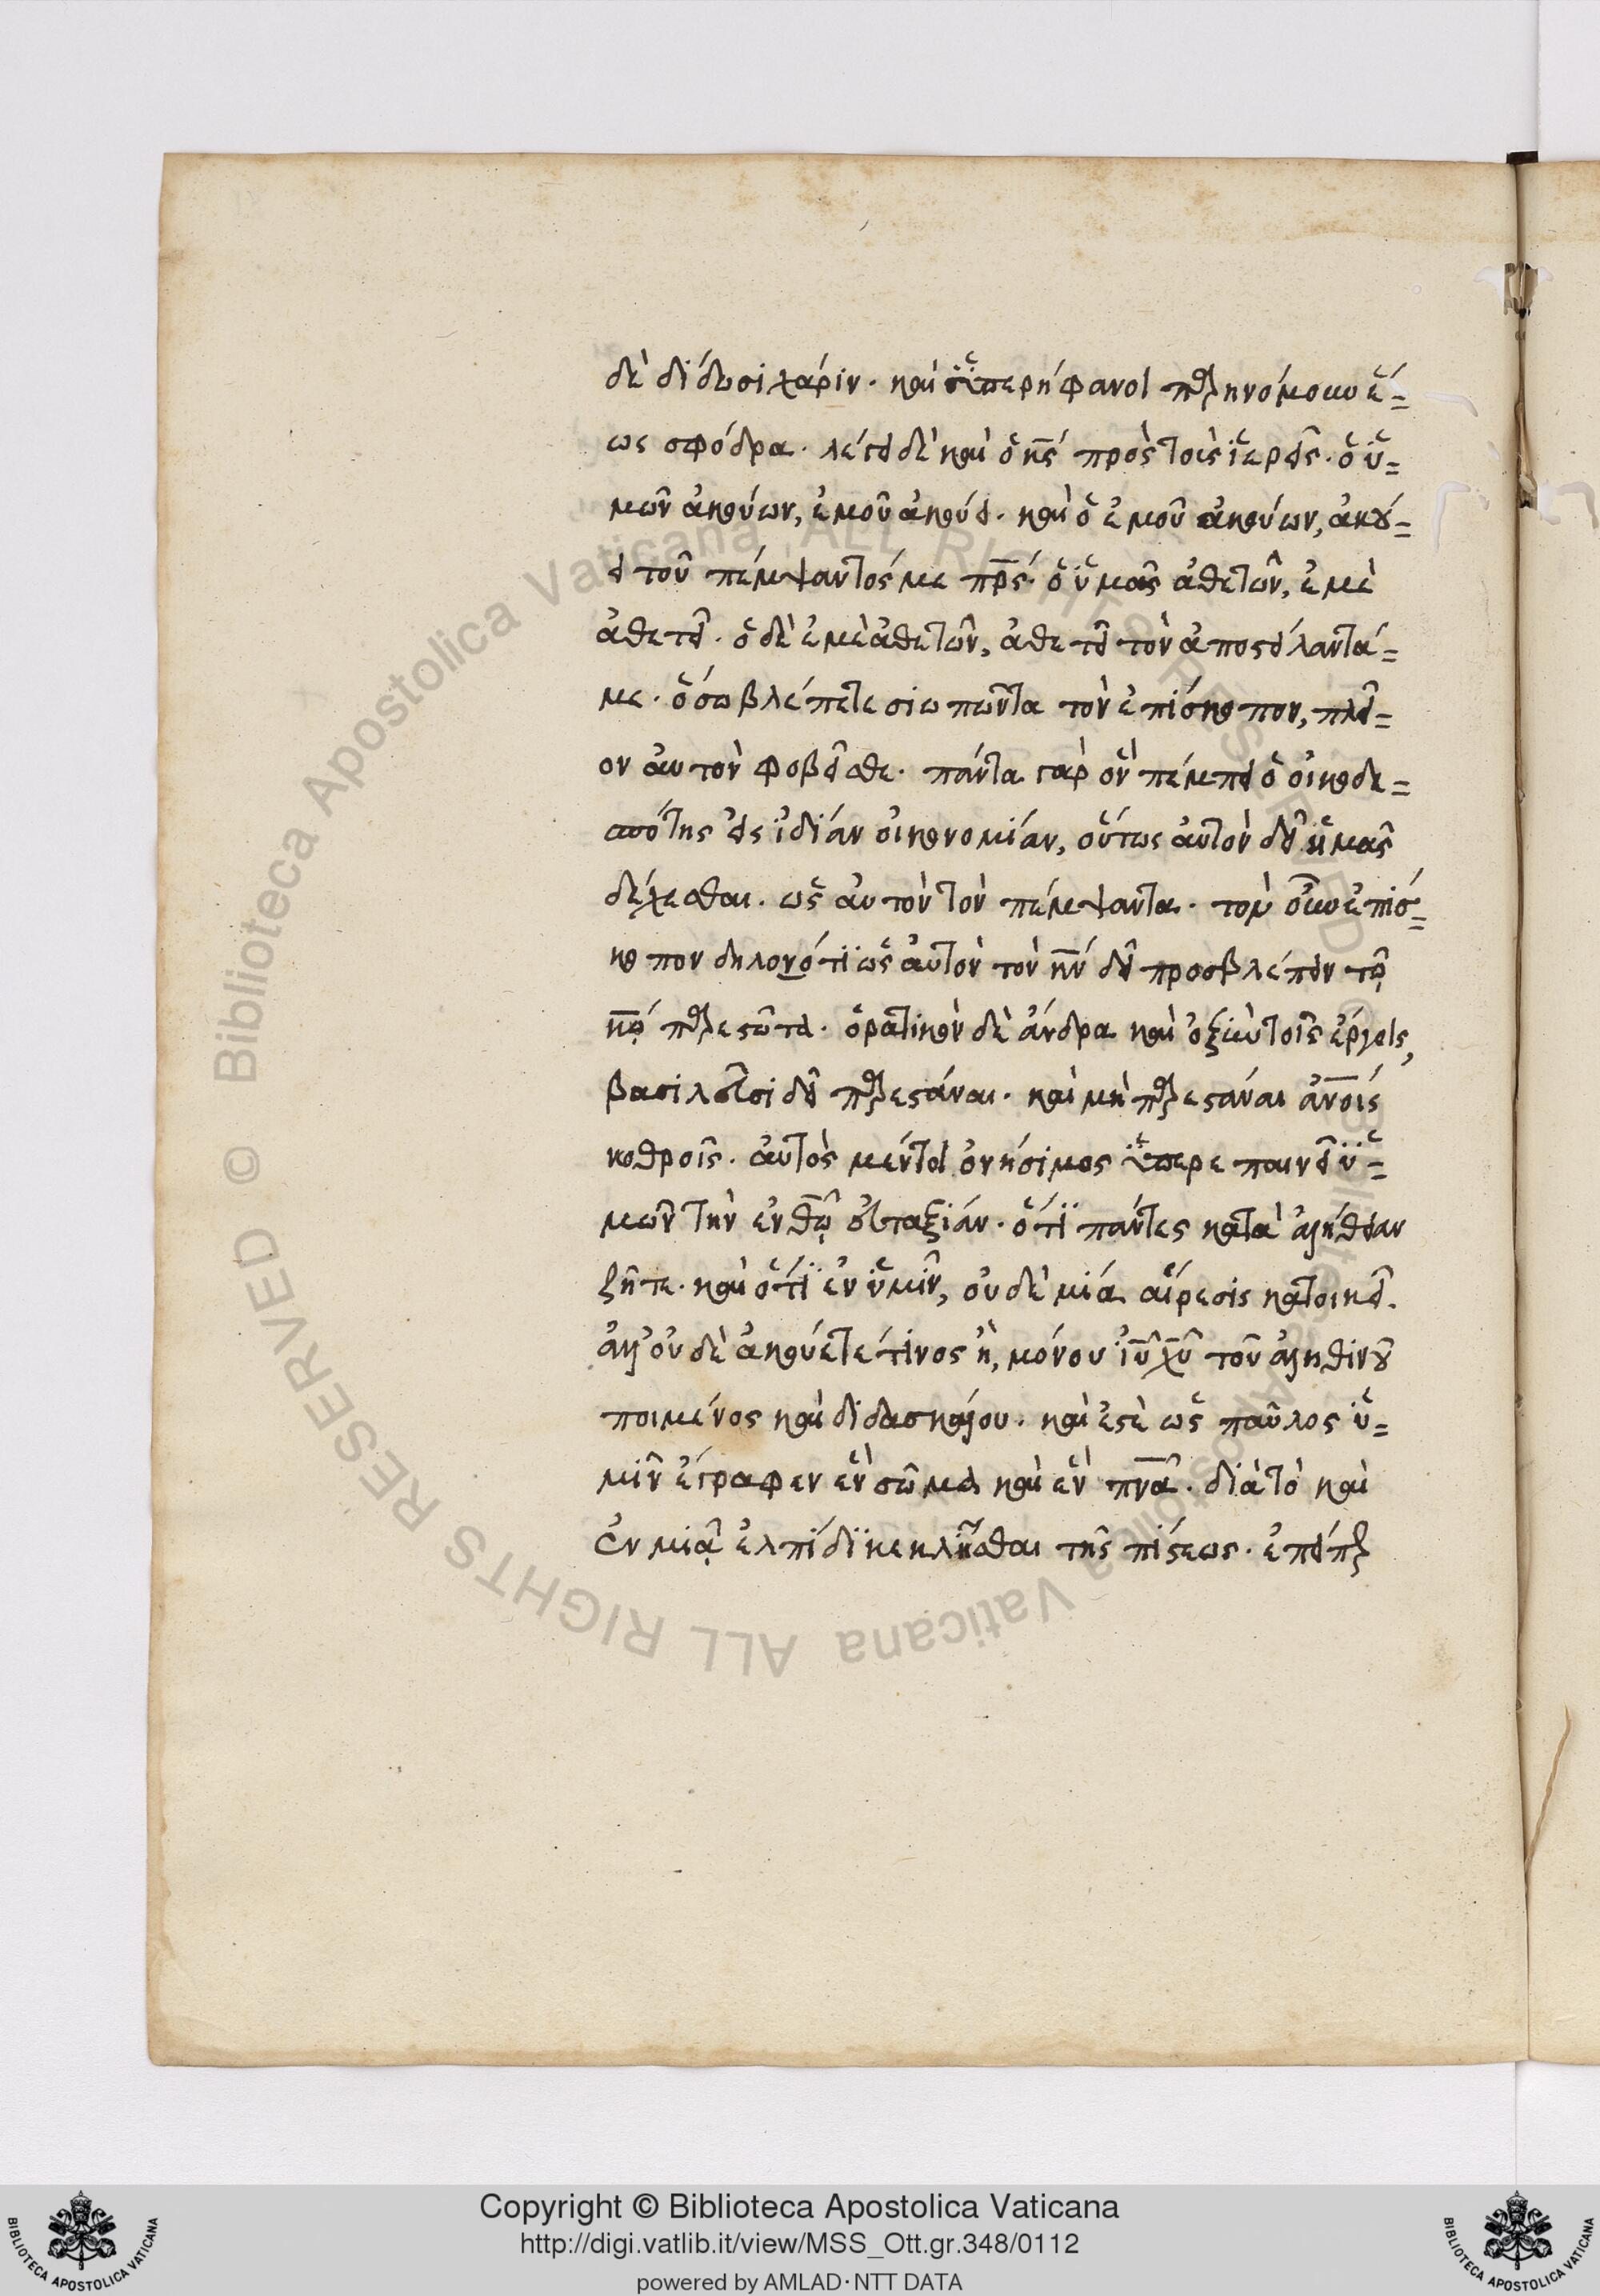 δὲ δίδωσι χάριν. καὶ ὑπερήφανοι παρηνόμουν ἕ=
ως σφόδρα. λέγει δὲ καὶ ὁ κς πρὸς τοὺς ἱερεῖς. ὁ ὑ=
μῶν ἀκούων, ἐμοῦ ἀκούει. καὶ ὁ ἐμοῦ ἀκούων, ἀκού=
ει τοῦ πέμψαντός με πρς. ὁ ὑμᾶς ἀθετῶν, ἐμὲ
ἀθετεῖ. ὁ δὲ ἐμὲ ἀθετῶν, ἀθετεῖ τὸν ἀποστείλαντά=
με. ὅσω βλέπετε σιωπῶντα τὸν ἐπίσκοπον, πλεῖ=
ον αὐτὸν φοβεῖσθε. πάντα γὰρ ὃν πέμπει ὁ οἰκοδε=
σπότης εἰς ἰδίαν οἰκονομίαν, οὕτως αὐτὸν δεῖ ἡμᾶς
δέχεσθαι. ὡς αὐτὸν τὸν πέμψαντα. τὸν οὖν ἐπίσ=
κοπον δηλονότι ὡς αὐτὸν τὸν κν δεῖ προσβλέπειν τῷ
κῳ παρεστῶτα. ὁρατικὸν δὲ ἄνδρα καὶ ὀξὺν τοῖς ἔργοις,
βασιλεῦσι δεῖ παρεστάναι. καὶ μὴ παρεστάναι ἀνοις
νωθροῖς. αὐτὸς μέντοι ὀνήσιμος ὑπερεπαινεῖ ὑ=
μῶν τὴν ἐν θῷ εὐταξίαν. ὅτι πάντες κατὰ ἀλήθειαν
ζῆτε. καὶ ὅτι ἐν ὑμῖν, οὐδὲ μία αἵρεσις κατοικεῖ.
ἀλλ' οὐδὲ ἀκούετέ τινος ἢ, μόνου ἰῦ χῦ τοῦ ἀληθινοῦ
ποιμένος καὶ διδασκάλου. καὶ ἐστὲ ὡς παῦλος ὑ=
μῖν ἔγραφεν ἓν σῶμα καὶ ἓν πνᾶ. διὰ τὸ καὶ
ἐν μιᾷ ἐλπίδι κεκλῆσθαι τῆς πίστεως. ἐπείπερ
Copyright © Biblioteca Apostolica Vaticana
http://digi.vatlib.it/view/MSS_Ott.gr.348/0112
powered by AMLAD·NTT DATA
BIBLIOTECA APOSTOLICA VATICANA
BIBLIOTECA APOSTOLICA VATICANA
© Biblioteca Apostolica Vaticana ALL RIGHTS RESERVED
© Biblioteca Apostolica Vaticana ALL RIGHTS RESERVED